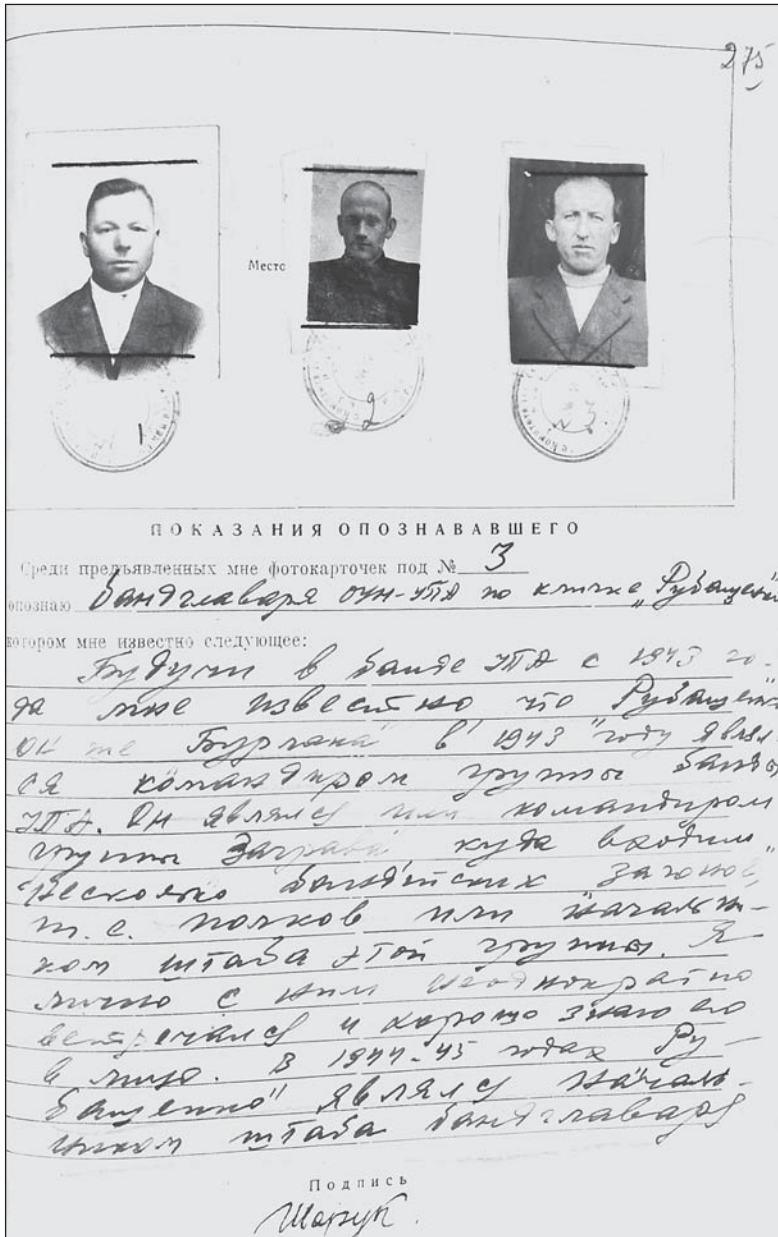 275
Место
1
2
№ 3
ПОКАЗАНИЯ ОПОЗНАВАВШЕГО
Среди предъявленных мне фотокарточек под № 3
опознаю бандглаваря ОУН-УПА по кличке „Рубащенко"
котором мне известно следующее:
Будучи в банде УПА с 1943 го-
да мне известно что Рубащенк
он же в 1943 году являл
ся командиром группы банды
УПА. Он являлся или командиром
группы Заграва куда входили
несколько бандитских загонов,
т.е. полков или началь-
ком штаба этой группы. Я
лично с ним неоднократно
встречался и хорошо знаю его
в лицо. В 1944-45 годах Ру-
бащенко" являлся началь-
ником штаба бандглаваря
Подпись